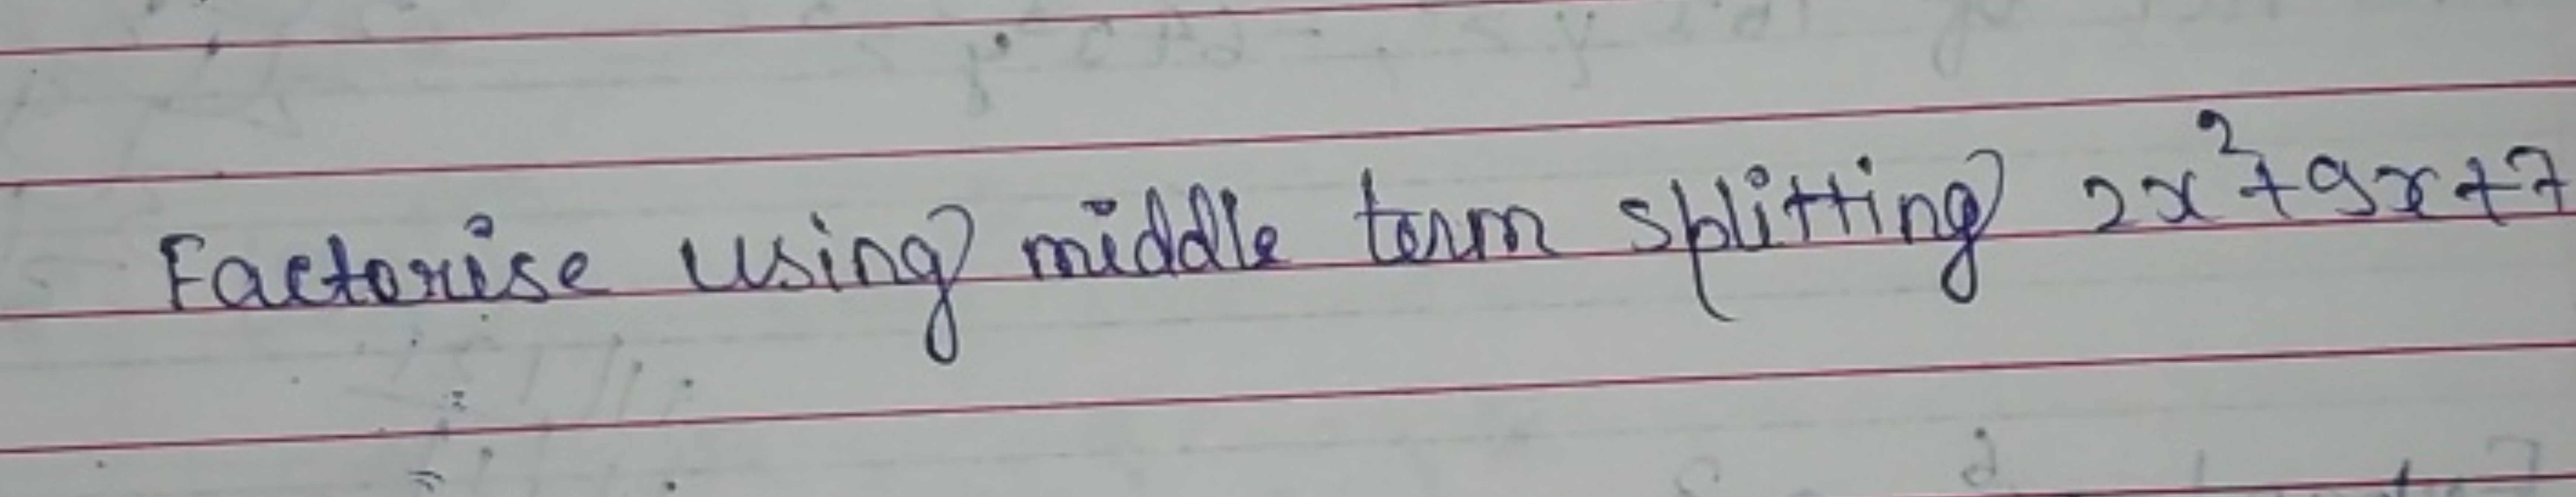 Factorise using middle term splitting 2x²+9x+7